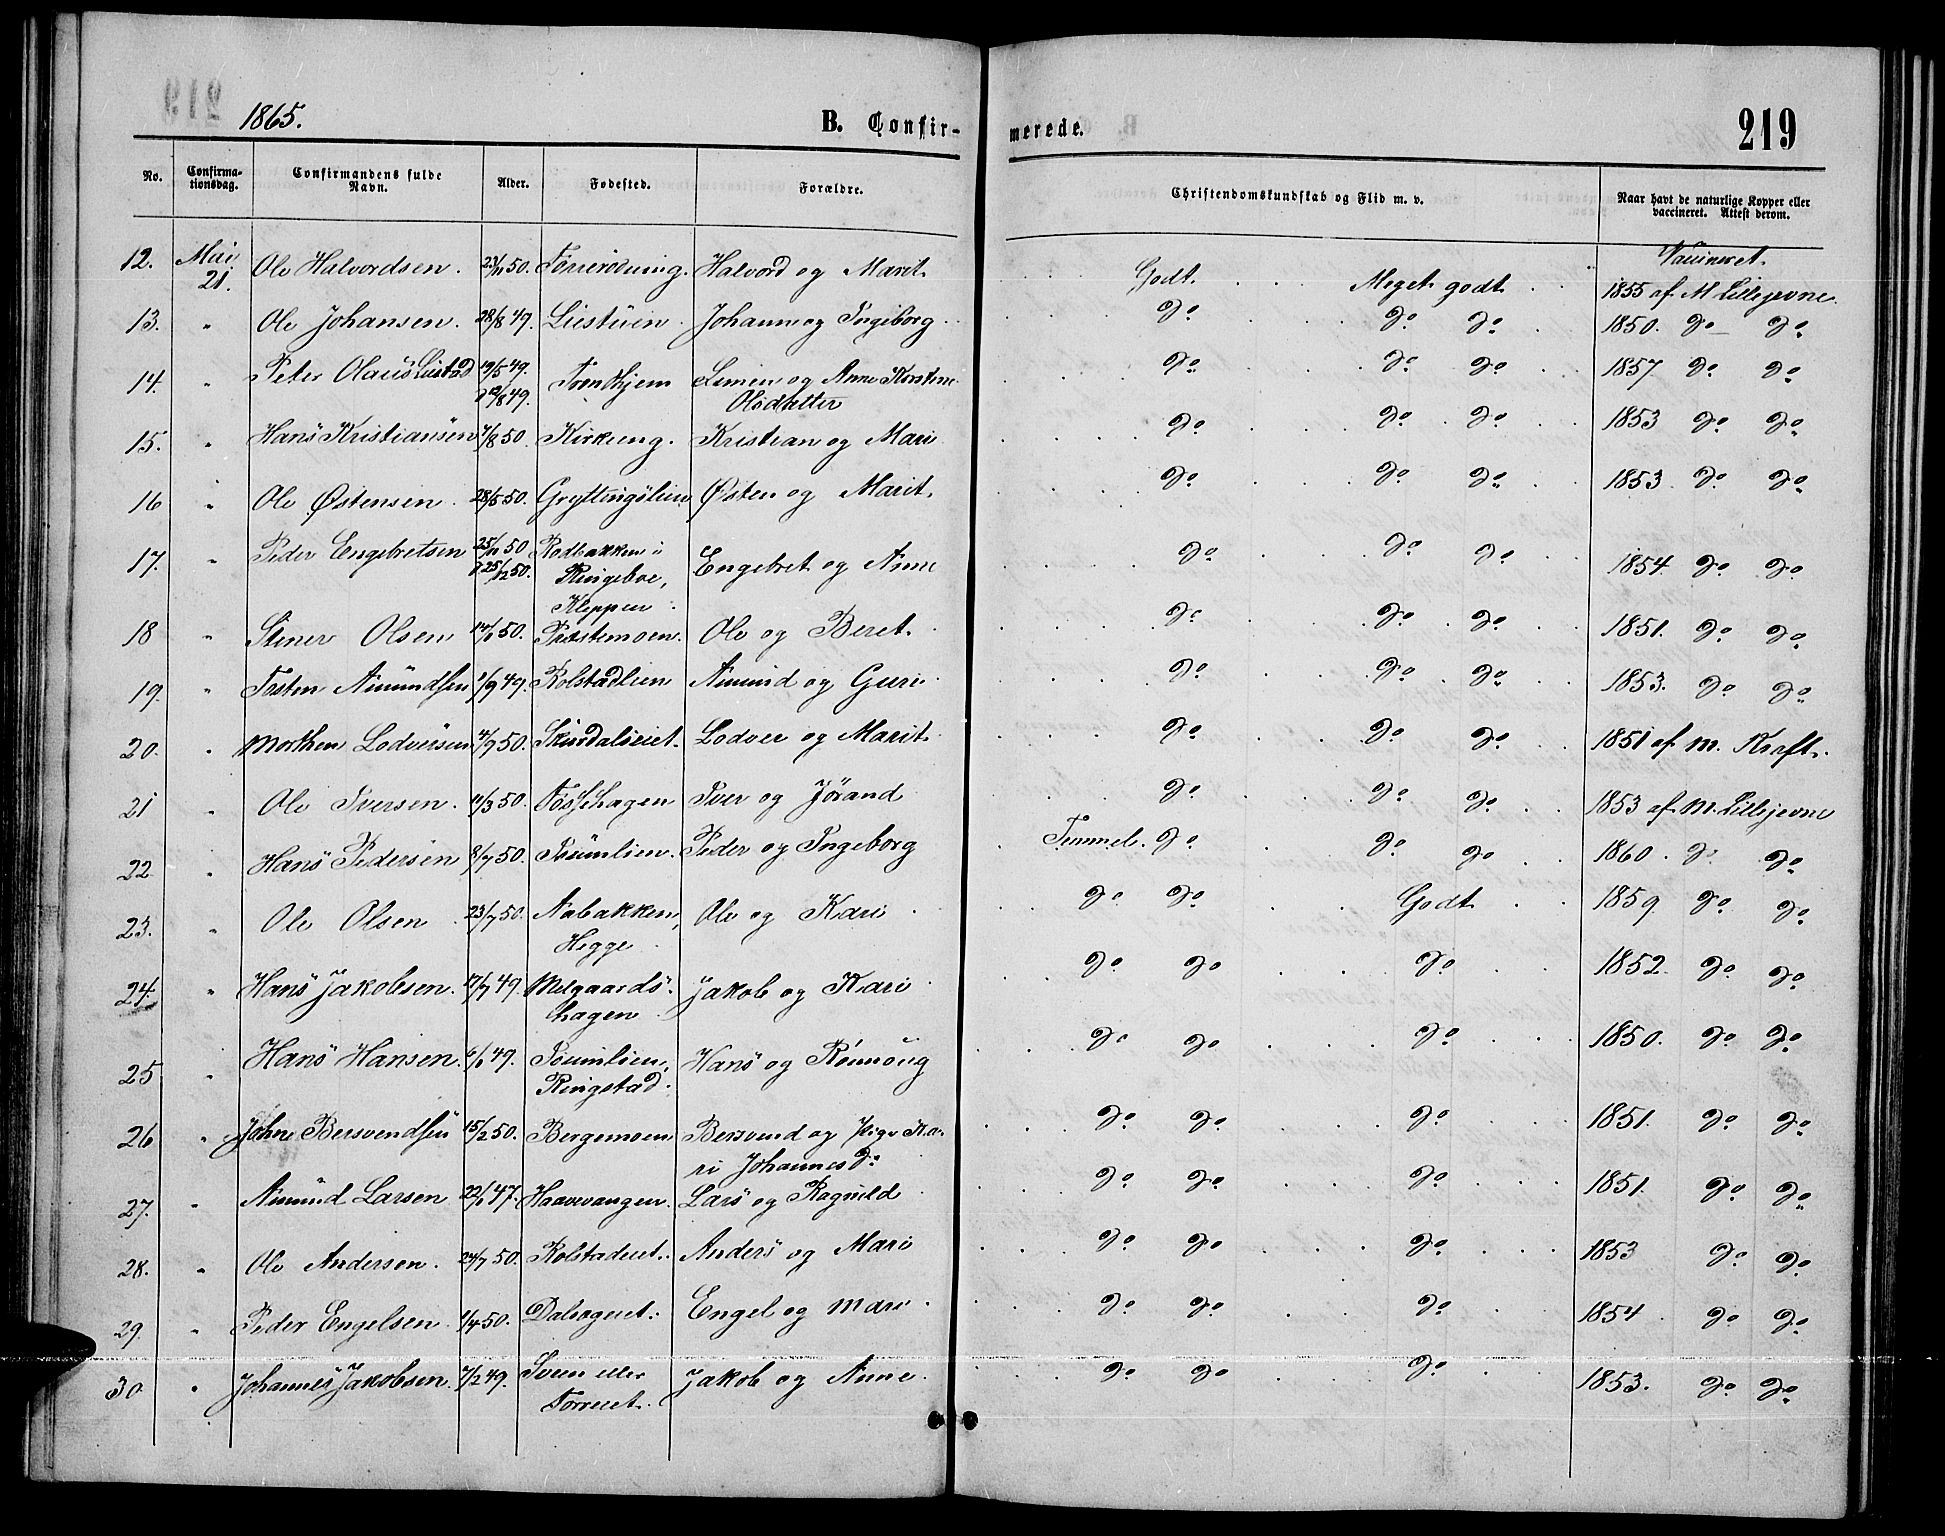 1865.
B. Confir-
merede.
219
No.
Confirma-
tionsdag.
Confirmandens fulde
Navn.
Alder.
Fødested.
Forældre.
Christendomskundskab og Flid m. v.
Naar havt de naturlige Kopper eller
vaccineret. Attest derom.
Vaccineret.
12. Mai 21. Ole Halvordsen. 23/11 50. Halvord og Marit. Godt. Meget godt 1855 af M Lillejevne.
13. " Ole Johansen. 28/8 49. Liestuen Johan og Ingeborg do do do 1850. do do
14. " Peter Olaus Listad 19/5 49. d 12/8 49. Trondhjem Simen og Anne Kirstine
Olsdatter do do do 1857 do do
15. " Hans Kristiansen 7/8 50. Kirkeeng. Kristian og Mari do do do 1853 do do
16 " Ole Østensen. 28/5 50. Gryttingslien Østen og Marit. do do do 1853. do do
17. " Peder Engebretsen 25/11 50 d 25/12 50. Rodbakken i
Ringeboe,
Kleppen Engebret og Anne do do do 1854. do do
18 " Stener Olsen 50. Præstemoen. Ole og Beret. do do do 1851. do do
19. " Tosten Amundsen 1/9 49. Kolstadlien Amund og Guri. do do do 1853. do do
20. " Morthen Lodversen 4/9 50. Skurdalseiet. Lodver og Marit. do do do 1851 af M. Kraft.
21 " Ole Iversen. 11/3 50. Fossehagen Iver og Jørand do do do 1853 af M. Lillejevne
22 " Hans Pedersen 8/7 50. Peder og Ingeborg Temmel. do do do 1860. do do
23. " Ole Olsen 23/7 50. Aabakken,
Hegge Ole og Kari do do Godt 1859. do do
24. " Hans Jakobsen. 17/7 49. Melgaards-
hagen Jakob og Kari do do do 1852. do do
25 " Hans Hansen. 49.
Ringstad. Hans og Rønnoug do do do 1850. do do
26 " Johne Bersvendsen 15/2 50. Bergemoen Bersvend og Pige Ka-
ri Johannesd. do do do 1851. do do
27. " Amund Larsen 47. Haavevangen. Lars og Ragnild do do do 1851. do do
28. " Ole Andersen. 24/7 50. Kolstadeiet. Anders og Mari do do do 1853 do do
29. " Peder Engelsen. 1/4 50. Engel og Mari. do do do 1854. do do
30 " Johannes Jakobsen. 7/2 49. Sveen eller
Jakob og Anne. do do do 1853. do do